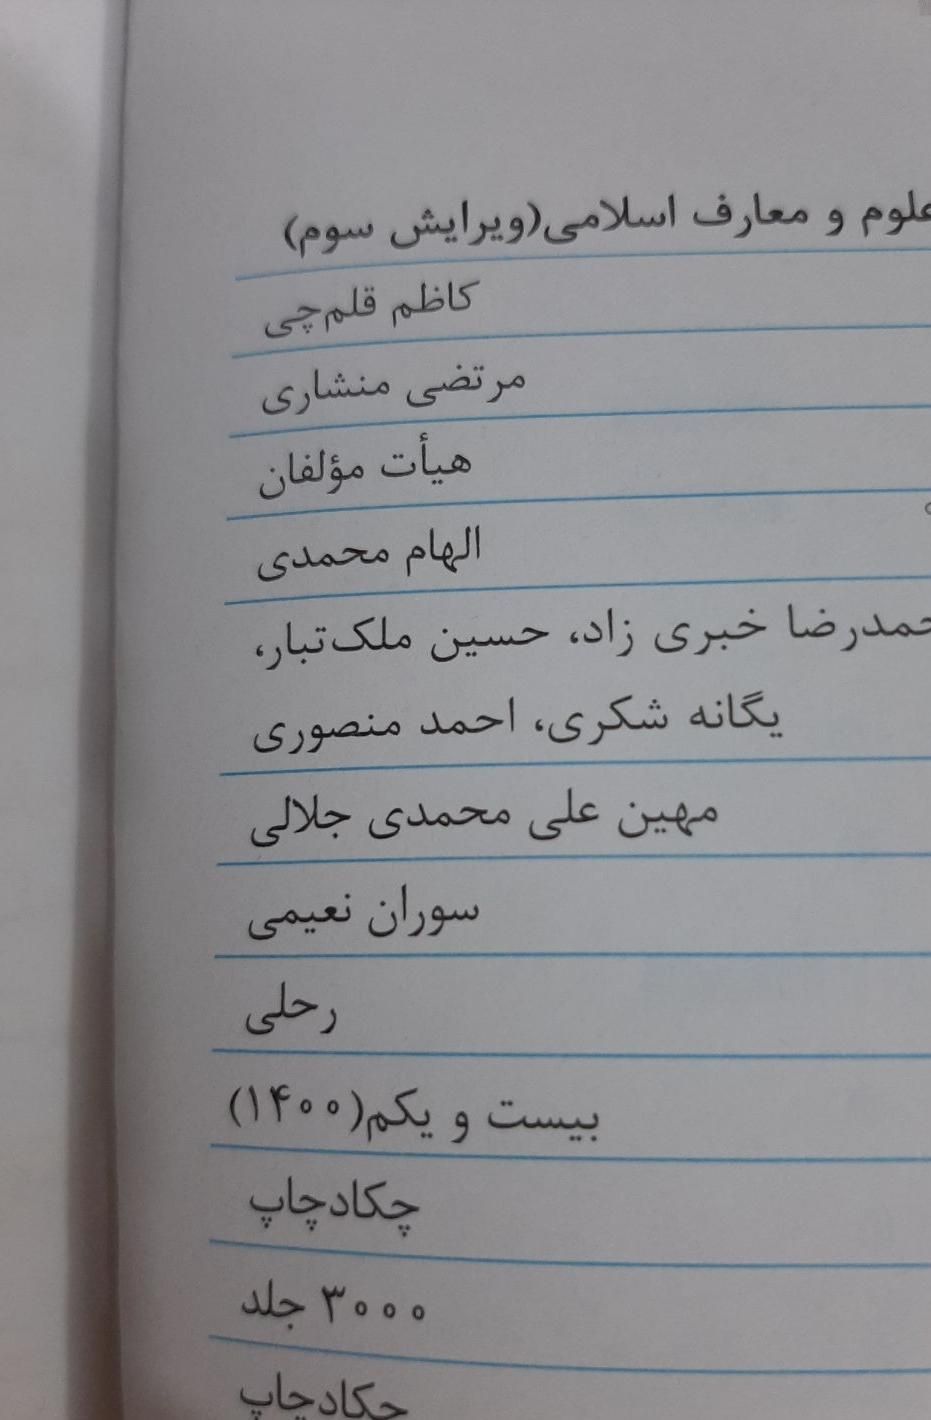 علوم و معارف اسلامی(ویرایش سوم)
کاظم قلم‌چی
مرتضی منشاری
هیأت مؤلفان
الهام محمدی
حمدرضا خبری زاد، حسین ملک‌تبار،
یگانه شکری، احمد منصوری
مهین علی محمدی جلالی
سوران نعیمی
رحلی
بیست و یکم(۱۴۰۰)
چکادچاپ
۳۰۰۰ جلد
چکادچاپ